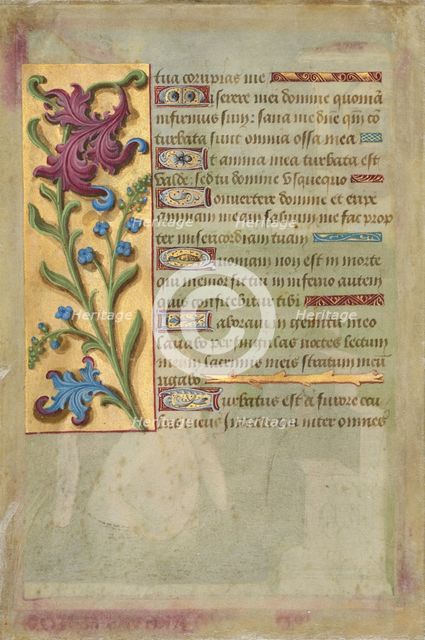 tua corripias me
Miserere mei domine quoniā
infirmus sum: sana me dñe qm̄ cō
turbata sunt omnia ossa mea
Et anima mea turbata est
valde: sed tu domine vsquequo
Conuertere domine et eripe
animam meā saluum me fac prop
ter misericordiam tuam
Quoniam non est in morte
qui memor sit tui in inferno autem
quis confitebitur tibi
Laboraui in gemitu meo
lauabo per singulas noctes lectum
meum lacrimis meis stratum meū
rigabo
Turbatus est a furore ocu
lus meus Inueteraui inter omnes
Heritage
Heritage
Heritage
Heritage
Heritage
Heritage